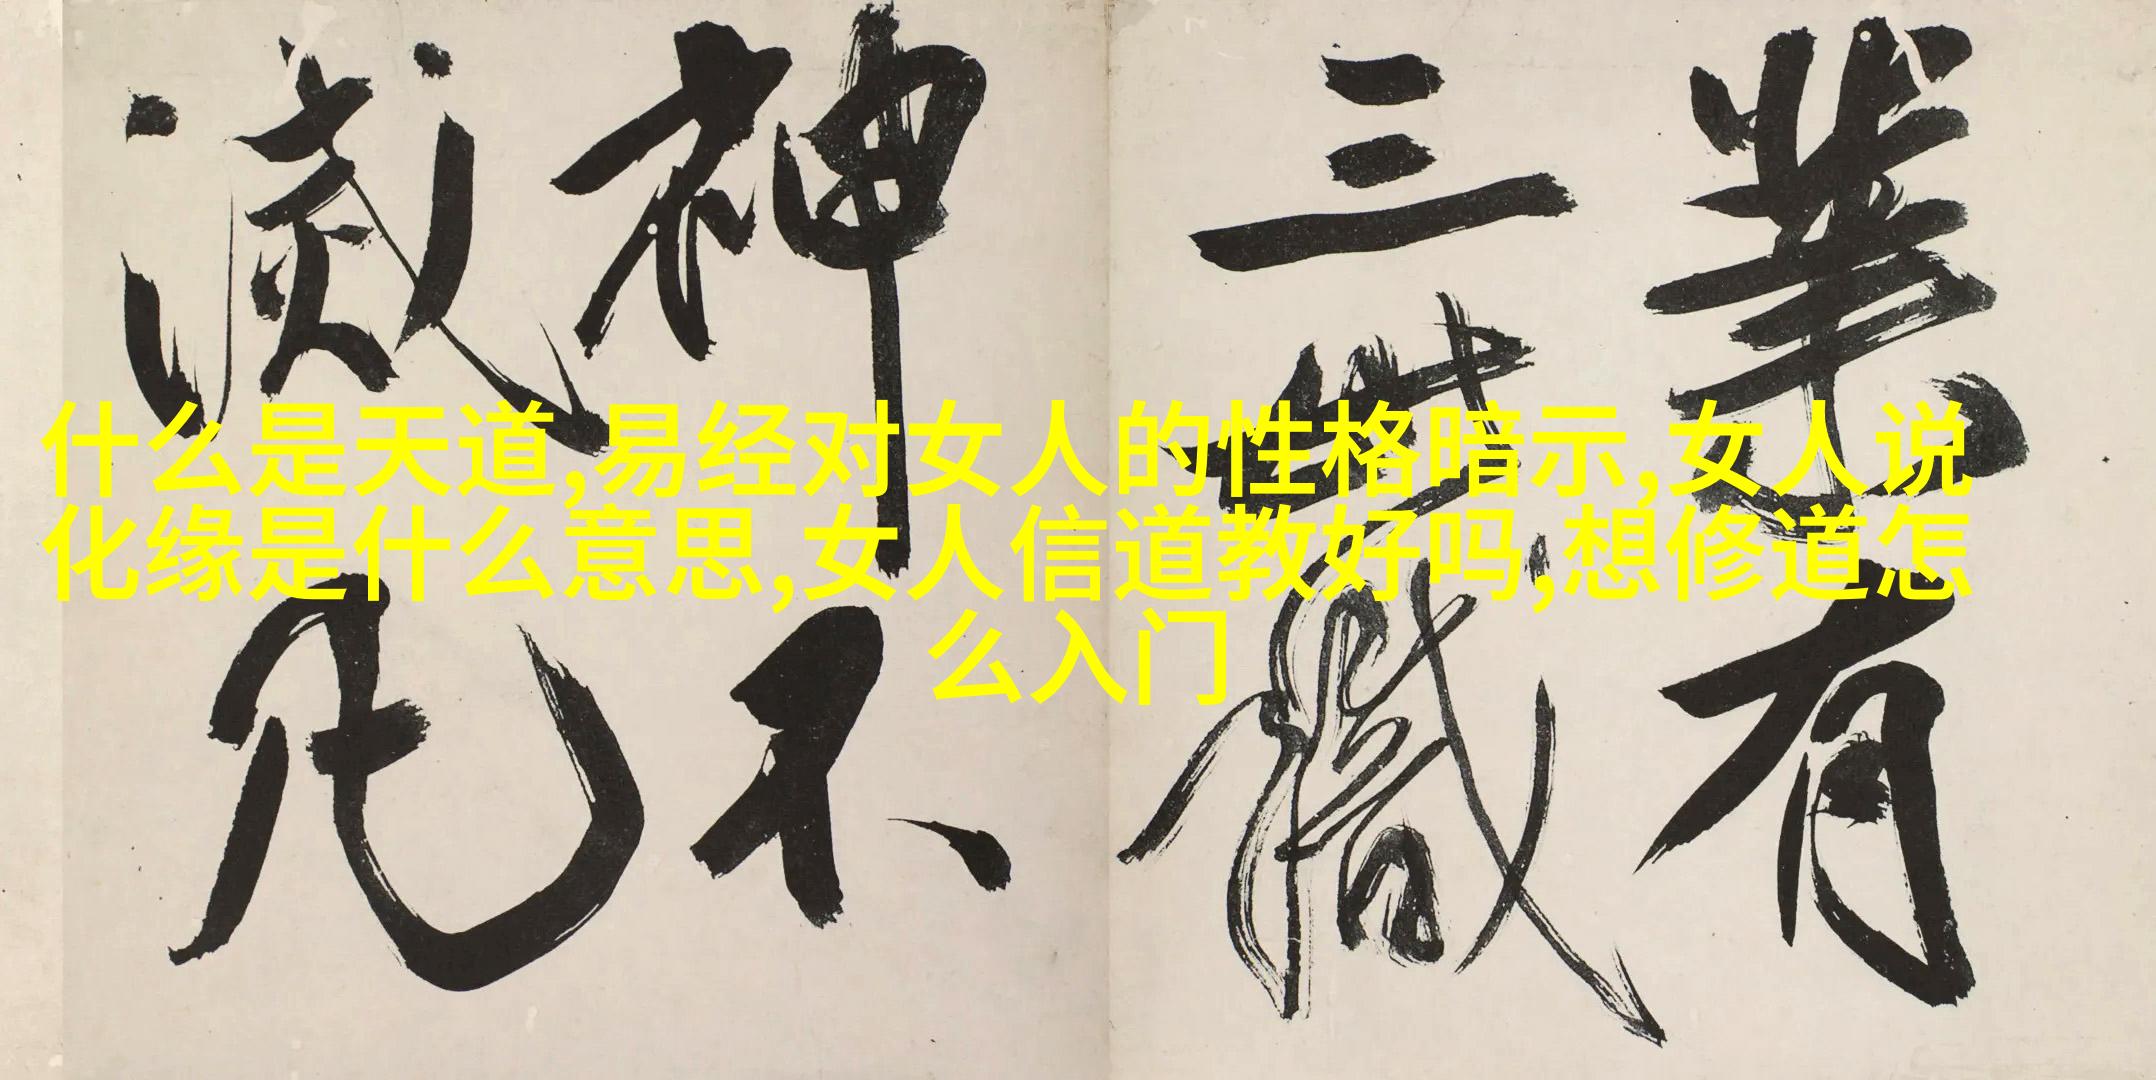 什么是天道,易经对女人的性格暗示,女人说
化缘是什么意思,女人信道教好吗,想修道怎
么入门
業有
三世識
神不
滅凡